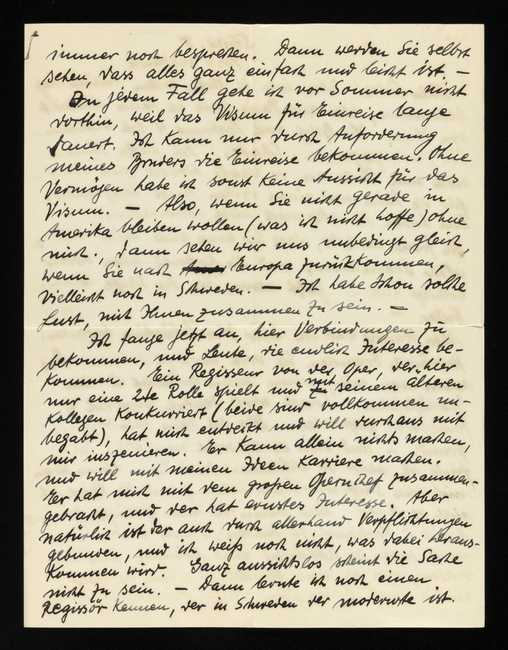 immer noch besprechen. Dann werden Sie selbst
sehen, dass alles ganz einfach und leicht ist. –
In jedem Fall gehe ich vor Sommer nicht
dorthin, weil das Visum für Einreise lange
dauert. Ich kann nur durch Anforderung
meines Bruders die Einreise bekommen. Ohne
Vermögen habe ich sonst keine Aussicht für das
Visum. – Also, wenn Sie nicht gerade in
Amerika bleiben wollen (was ich nicht hoffe) ohne
mich, dann sehen wir uns unbedingt gleich,
wenn Sie nach Europa zurückkommen,
vielleicht noch in Schweden. – Ich habe schon solche
Lust, mit Ihnen zusammen zu sein. –
Ich fange jetzt an, hier Verbindungen zu
bekommen, und Leute, die endlich Interesse be-
kommen. Ein Regisseur von der Oper, der hier
nur eine 2te Rolle spielt und mit seinem älteren
Kollegen konkurriert (beide sind vollkommen un-
begabt), hat mich entdeckt und will durchaus mit
mir inszenieren. Er kann allein nichts machen,
und will mit meinen Ideen Karriere machen.
Er hat mich mit dem großen Opernchef zusammen-
gebracht, und der hat ernstes Interesse. Aber
natürlich ist der auch durch allerhand Verpflichtungen
gebunden, und ich weiß noch nicht, was dabei heraus-
kommen wird. Ganz aussichtslos scheint die Sache
nicht zu sein. – Dann lernte ich noch einen
Regissör kennen, der in Schweden der modernste ist.